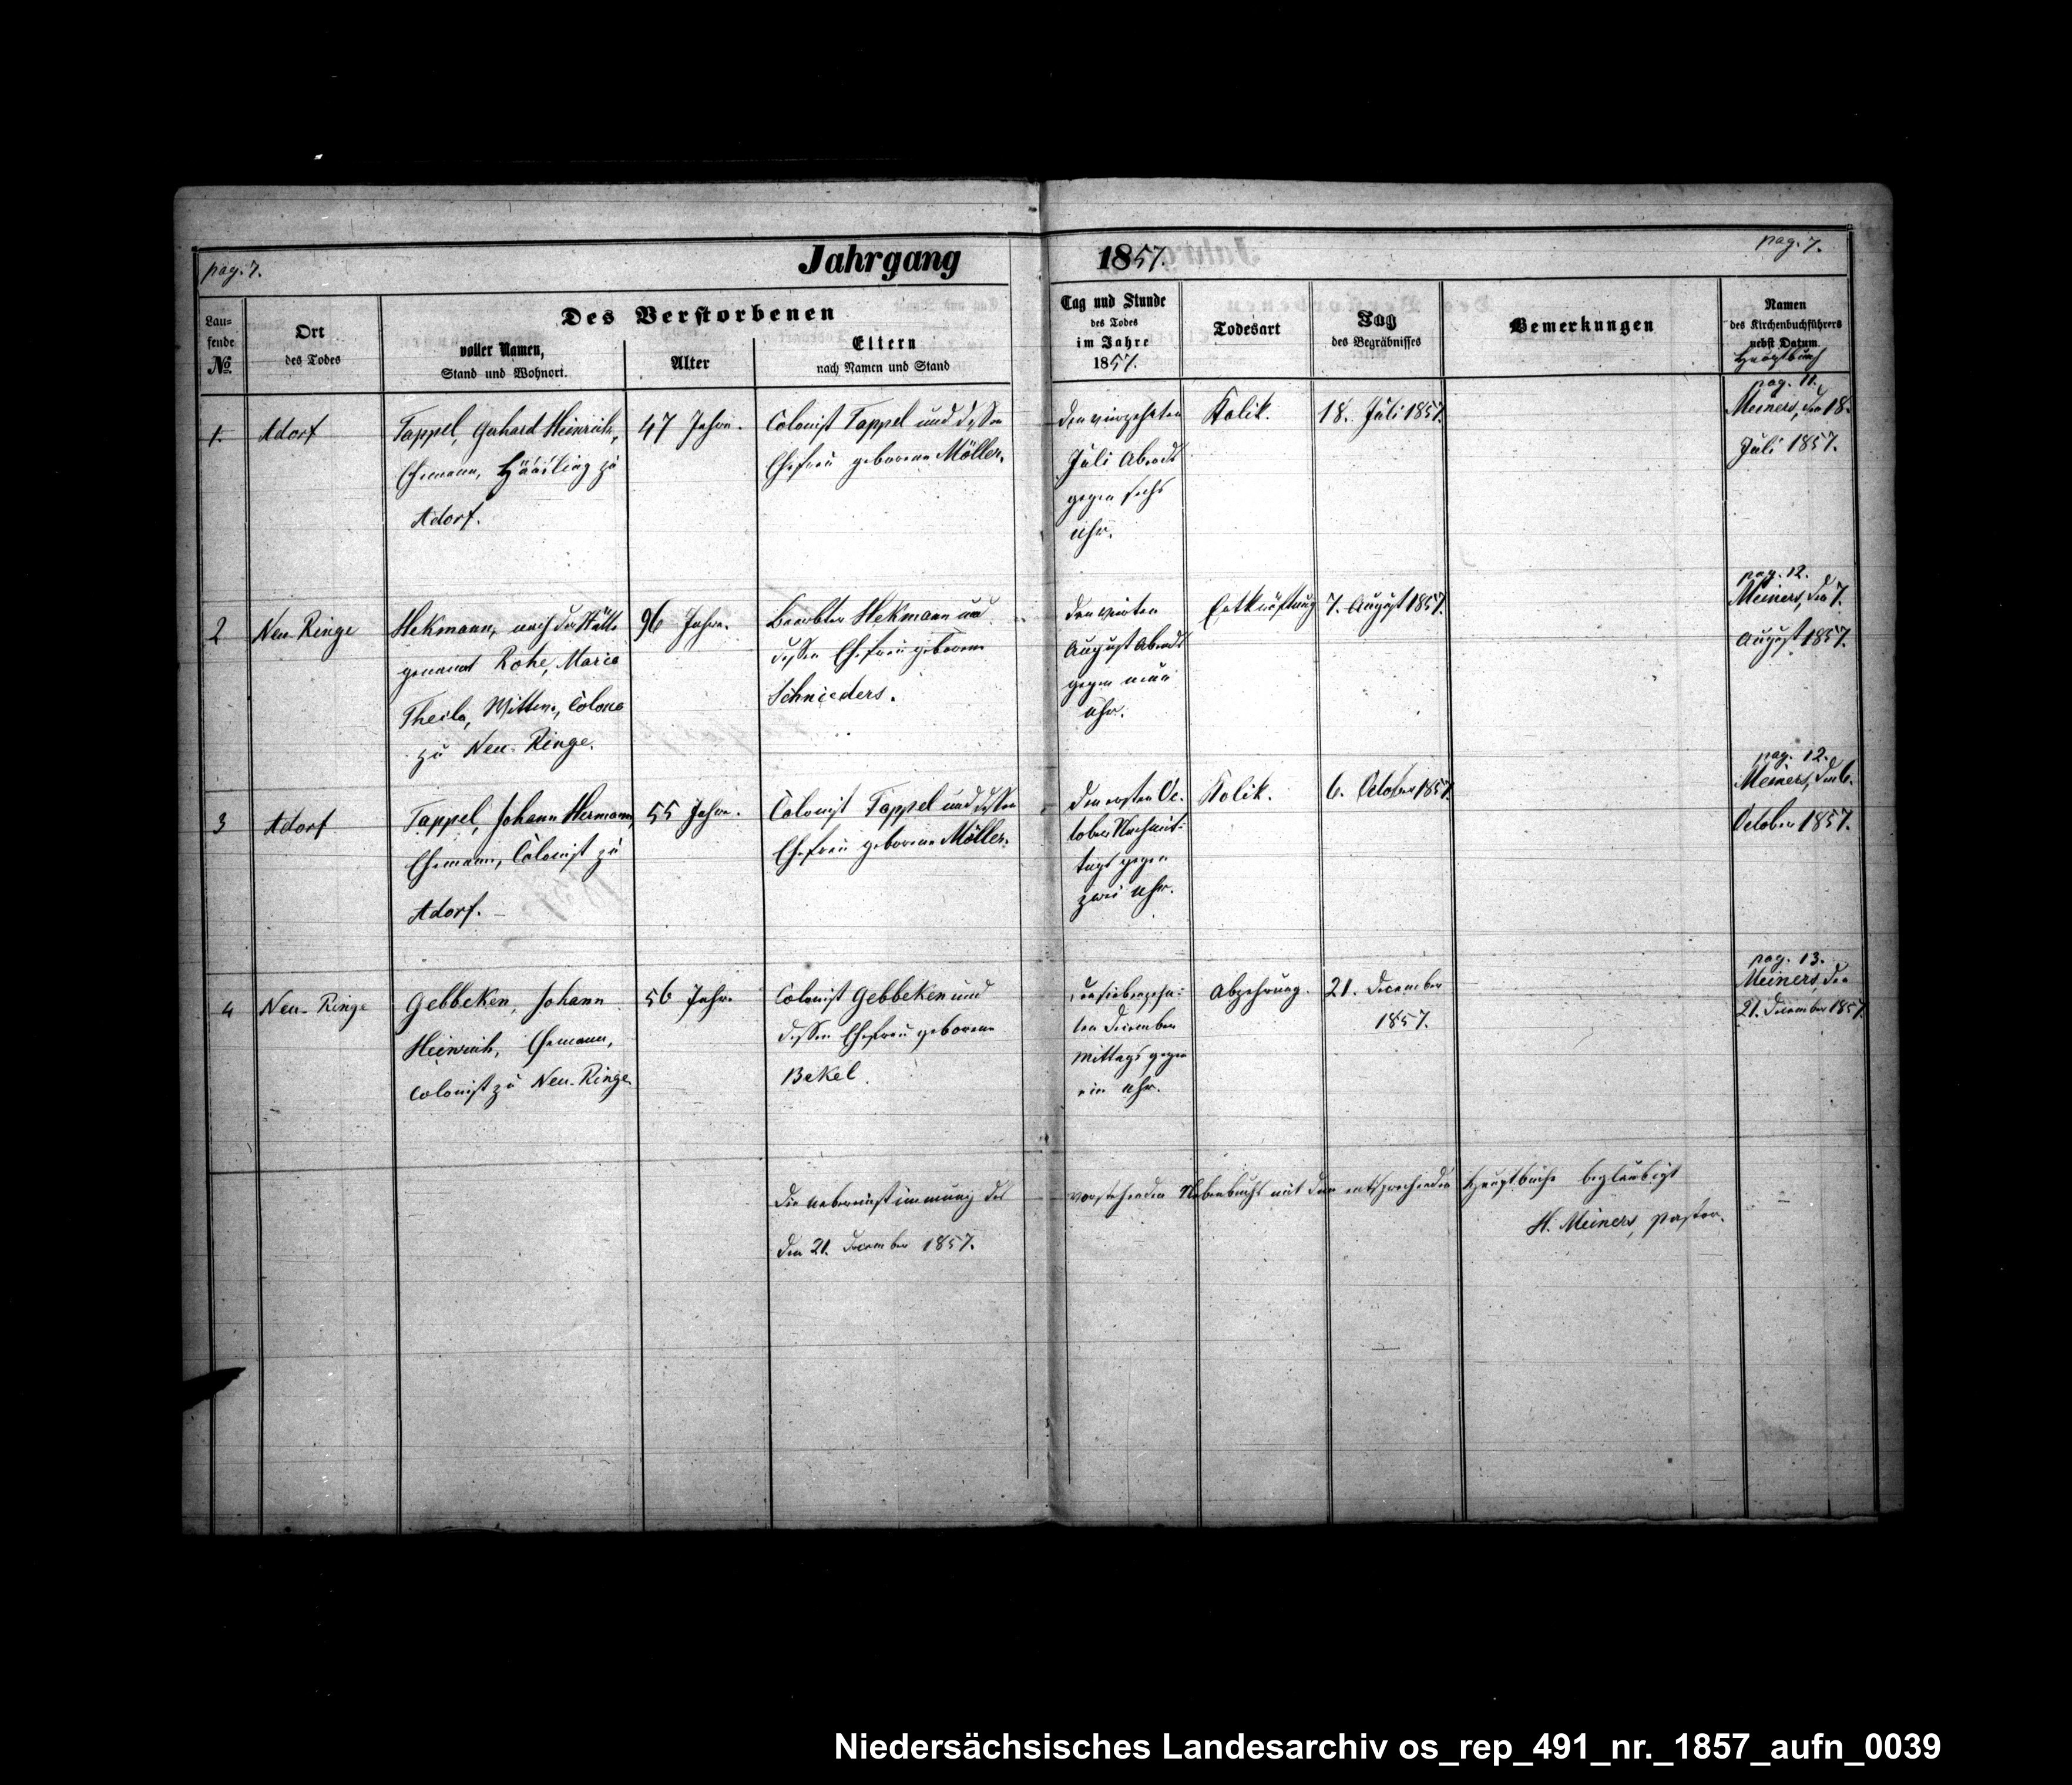 pag. 7.
Jahrgang 1857.
pag. 7.
Lau-
fende
No.
Ort
des Todes
Des Verstorbenen
voller Namen,
Stand und Wohnort.
Alter
Eltern
nach Namen und Stand
Tag und Stunde
des Todes
im Jahre
1857.
Todesart
Tag
des Begräbnisses
Bemerkungen
Namen
des Kirchenbuchführers
nebst Datum.
Hauptbuch
1.
Adorf
Tappel, Gerhard Heinrich,
Ehemann, Häusling zu
Adorf.
47 Jahre.
Colonist Tappel und dessen
Ehefrau geborene Möller.
den vierzehnten
Juli Abends
gegen sechs
Uhr.
Kolik.
18. Juli 1857.
pag. 11.
Meiners, den 18.
Juli 1857.
2
Neu-Ringe
Hekmann, nach der Stätte
genannt Rohe, Maria
Theila, Wittwe, Colona
zu Neu-Ringe.
96 Jahre.
Beerbter Hekmann und
dessen Ehefrau geborene
Schnieders.
den vierten
August Abends
gegen neun
Uhr.
Entkräftung
7. August 1857.
pag. 12.
Meiners, den 7.
August 1857.
3
Adorf
Tappel, Johann Hermann,
Ehemann, Colonist zu
Adorf.
55 Jahre.
Colonist Tappel und dessen
Ehefrau geborene Möller.
den ersten Oc-
tober Nachmit-
tags gegen
zwei Uhr.
Kolik.
6. October 1857.
pag. 12.
Meiners, den 6.
October 1857.
4
Neu-Ringe
Gebbeken, Johann
Heinrich, Ehemann,
Colonist zu Neu-Ringe
56 Jahre
Colonist Gebbeken und
dessen Ehefrau geborene
Bekel.
den siebenzehn-
ten December
Mittags gegen
ein Uhr.
Abzehrung.
21. December
1857.
pag. 13.
Meiners, den
21. December 1857.
Die Uebereinstimmung des vorstehenden Nebenbuchs mit dem entsprechenden Hauptbuche beglaubigt
den 21. December 1857.
H. Meiners, Pastor.
Niedersächsisches Landesarchiv os_rep_491_nr._1857_aufn_0039